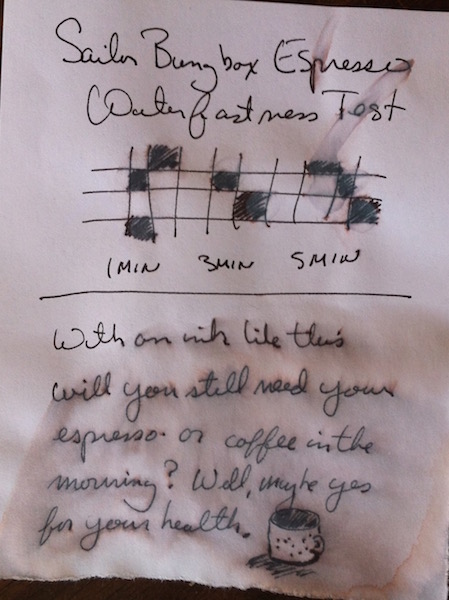 Sailor Bungbox Espresso
Waterfastness Test
1 MIN 3 MIN 5 MIN
With an ink like this
will you still need your
espresso or coffee in the
morning? Well, maybe yes
for your health.